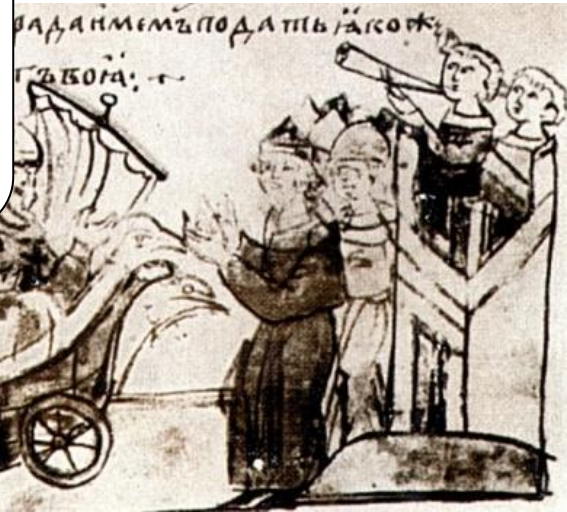 рада имемъ по дать ꙗкож
гъ воꙗ:·